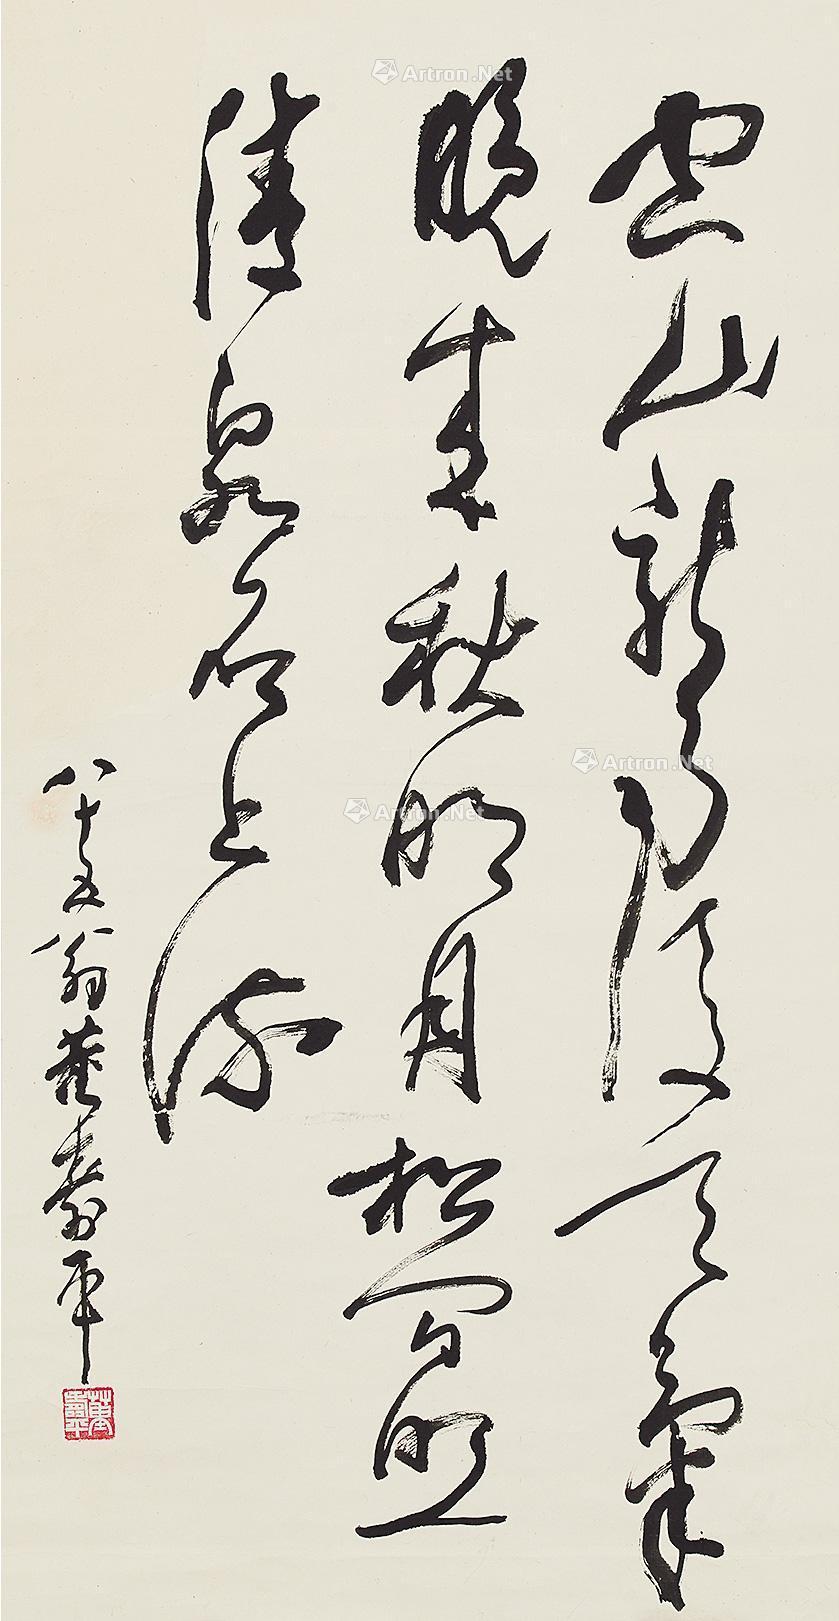 空山新雨後天氣
晚来秋明月松間照
清泉石上流
八十五翁董壽平
董壽平
Artron.Net
Artron.Net
Artron.Net